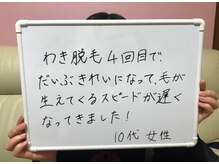 わき脱毛4回目で、
だいぶきれいになって、毛が
生えてくるスピードが遅く
なってきました！
10代 女性